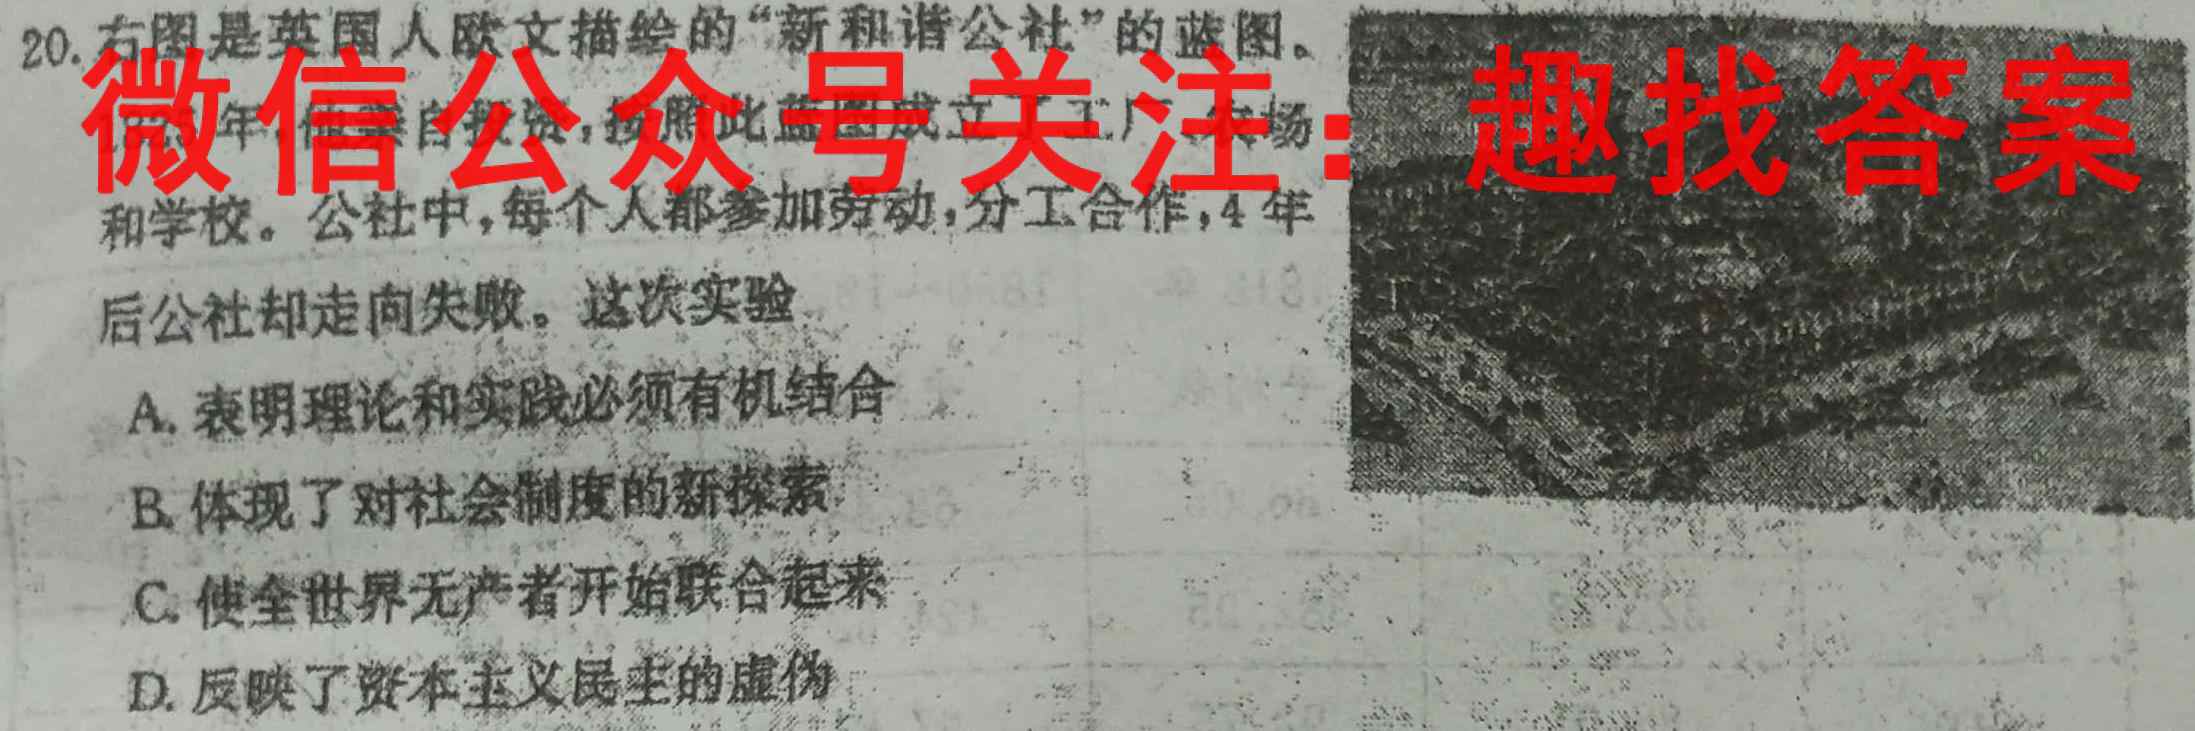 20. 右图是英国人欧文描绘的“新和谐公社”的蓝图。
微信公众号关注：趣找答案
年，他亲自投资，按照此蓝图成立了工厂、农场
和学校。公社中，每个人都参加劳动，分工合作，4 年
后公社却走向失败。这次实验
A. 表明理论和实践必须有机结合
B. 体现了对社会制度的新探索
C. 使全世界无产者开始联合起来
D. 反映了资本主义民主的虚伪